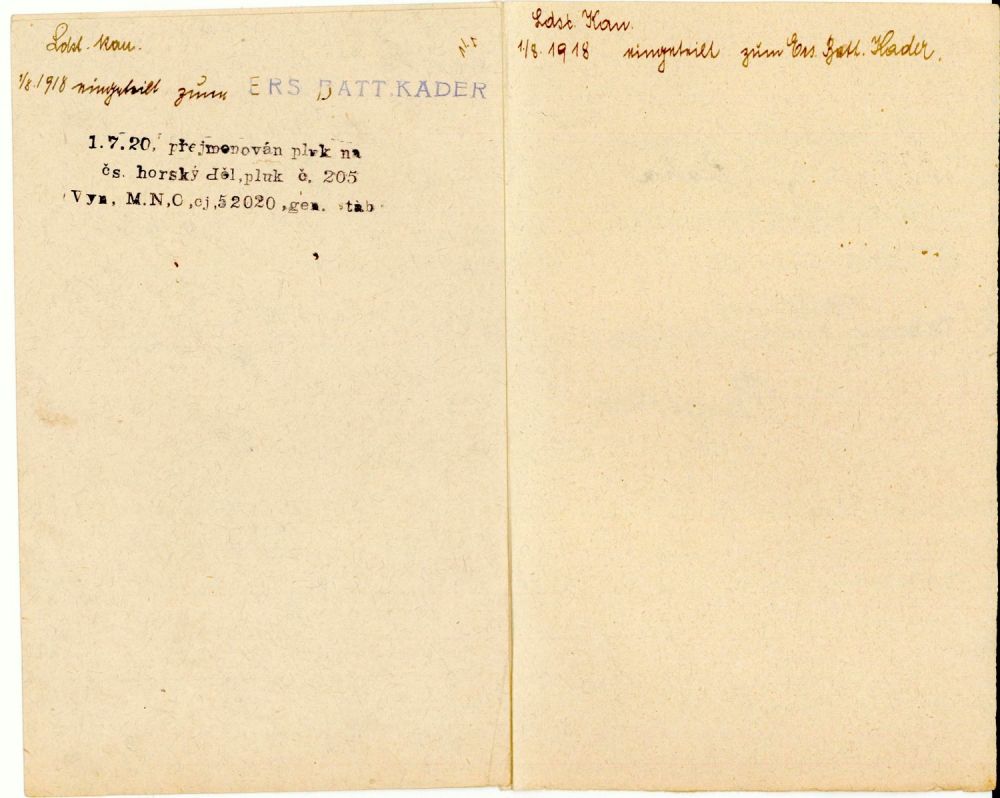 Ldst. Kan.
1/8.1918 eingeteilt zum ERS BATT.KADER
1.7.20, přejmenován pluk na
čs. horský děl,pluk č. 205
Vyn, M.N,O,cj,52020,gen. štáb
Ldst. Kan.
1/8. 1918 eingeteilt zum Ers. Batt. Kader.